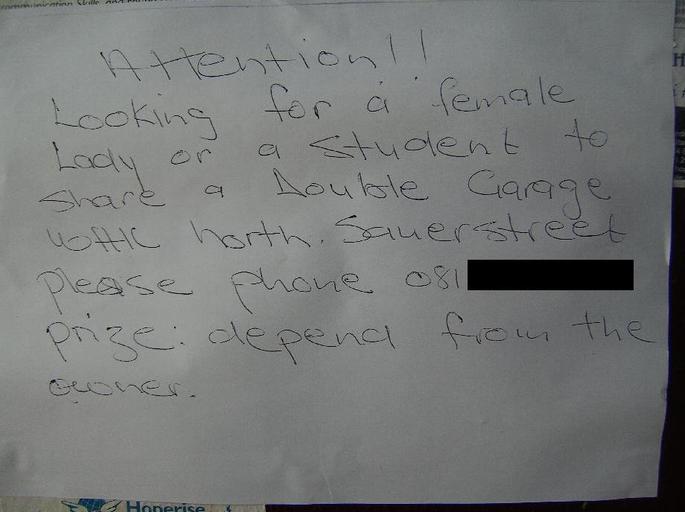 Attention!!
Looking for a female
Lady or a student to
share a Double Garage
north. Sauerstreet
please phone 081
prize: depend from the
owner.
Hoperise